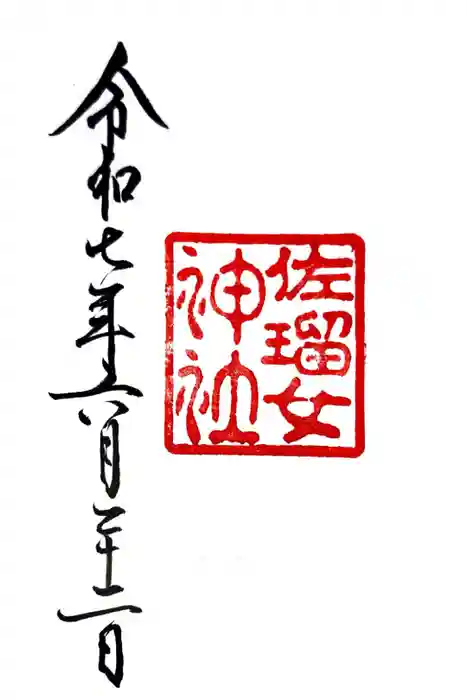 佐瑠女
神社
令和七年六月二十二日